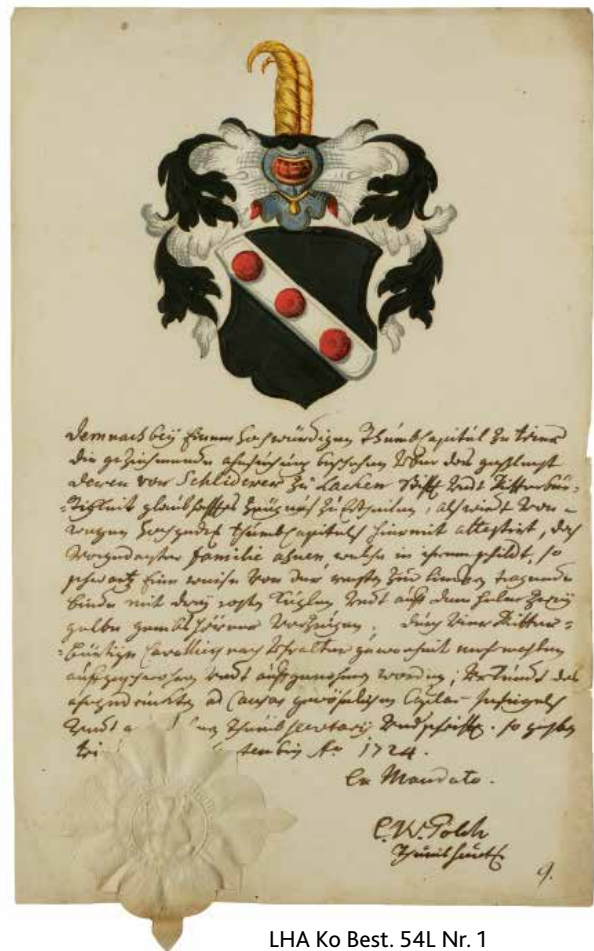 Demnach beÿ Einem hochwürdigen Thumbcapitul zu Trier
die geziemende ansuchung beschehen über das geschlecht
deren von Schliderer zu Lachen Stifft undt Ritterbür-
tigkeit glaubhafftes zeugnus zu ertheilen, als wird von
wegen hochged. thumbcapitels hiermit attestirt, daß
Vorgedachter familie ahnen, welche in ihrem schildt, so
schwartz Eine weise von der rechten zur lincken tragende
binde mit dreÿ rothe Kuglen, undt auff dem helm zweÿ
gelbe gembs hörner vorzeigen, durch vier Ritter-
bürtige Cavalliers nach uhralter gewohnheit
auffgeschworen undt auffgenohmen worden; Urkundt des
ad causas gewöhnlichen Insiegels
undt Thumbsecretarÿ Undschrifft. so geschehen
tri ten bris Ao 1724.
Ex Mandato.
C. W. Polch
9.
LHA Ko Best. 54L Nr. 1